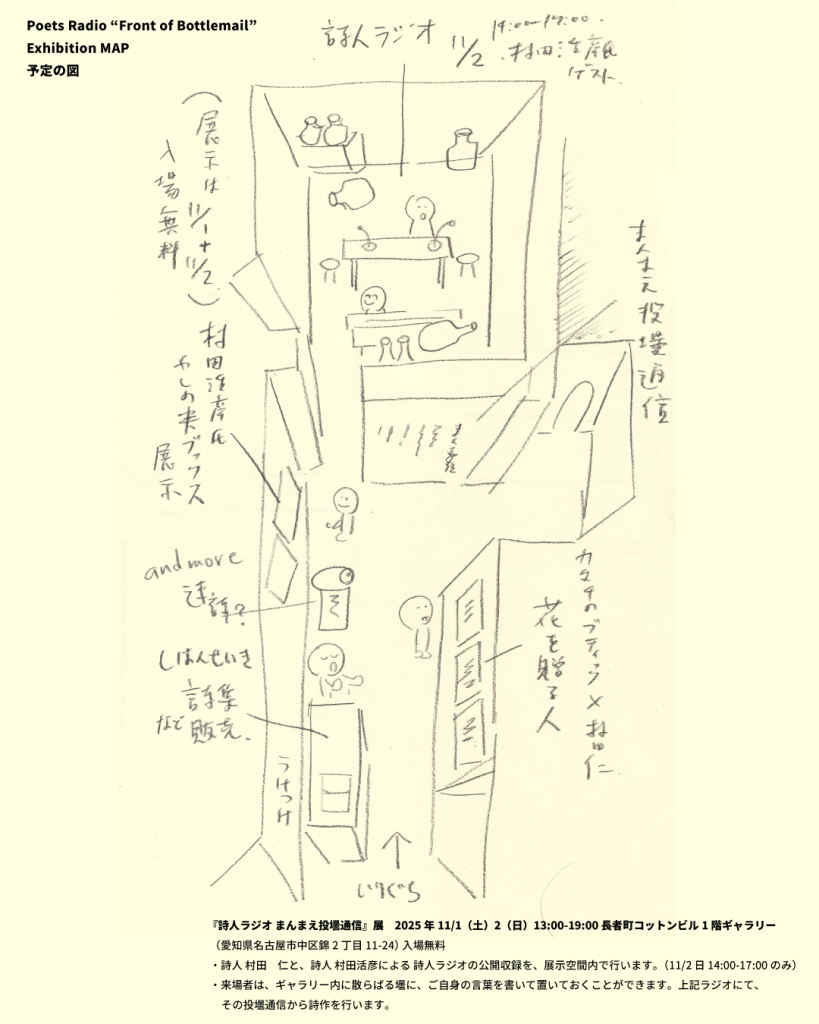 Poets Radio “Front of Bottlemail”
Exhibition MAP
予定の図
詩人ラジオ 11/2 14:00-17:00.
村田活彦氏
ゲスト.
（展示は11/1+11/2.）
入場無料
まんまえ投壜通信
村田活彦氏
やしの実ブックス
展示
and more
連詩?
しはんせいき
詩集
など販売.
うけつけ
いりぐち
カタチのブティック×村田仁.
花を贈る人
『詩人ラジオ まんまえ投壜通信』展　2025 年 11/1（土）2（日）13:00-19:00 長者町コットンビル 1 階ギャラリー
（愛知県名古屋市中区錦 2 丁目 11-24) 入場無料
・詩人 村田　仁と、詩人 村田活彦による 詩人ラジオの公開収録を、展示空間内で行います。（11/2 日 14:00-17:00 のみ）
・来場者は、ギャラリー内に散らばる壜に、ご自身の言葉を書いて置いておくことができます。上記ラジオにて、
その投壜通信から詩作を行います。